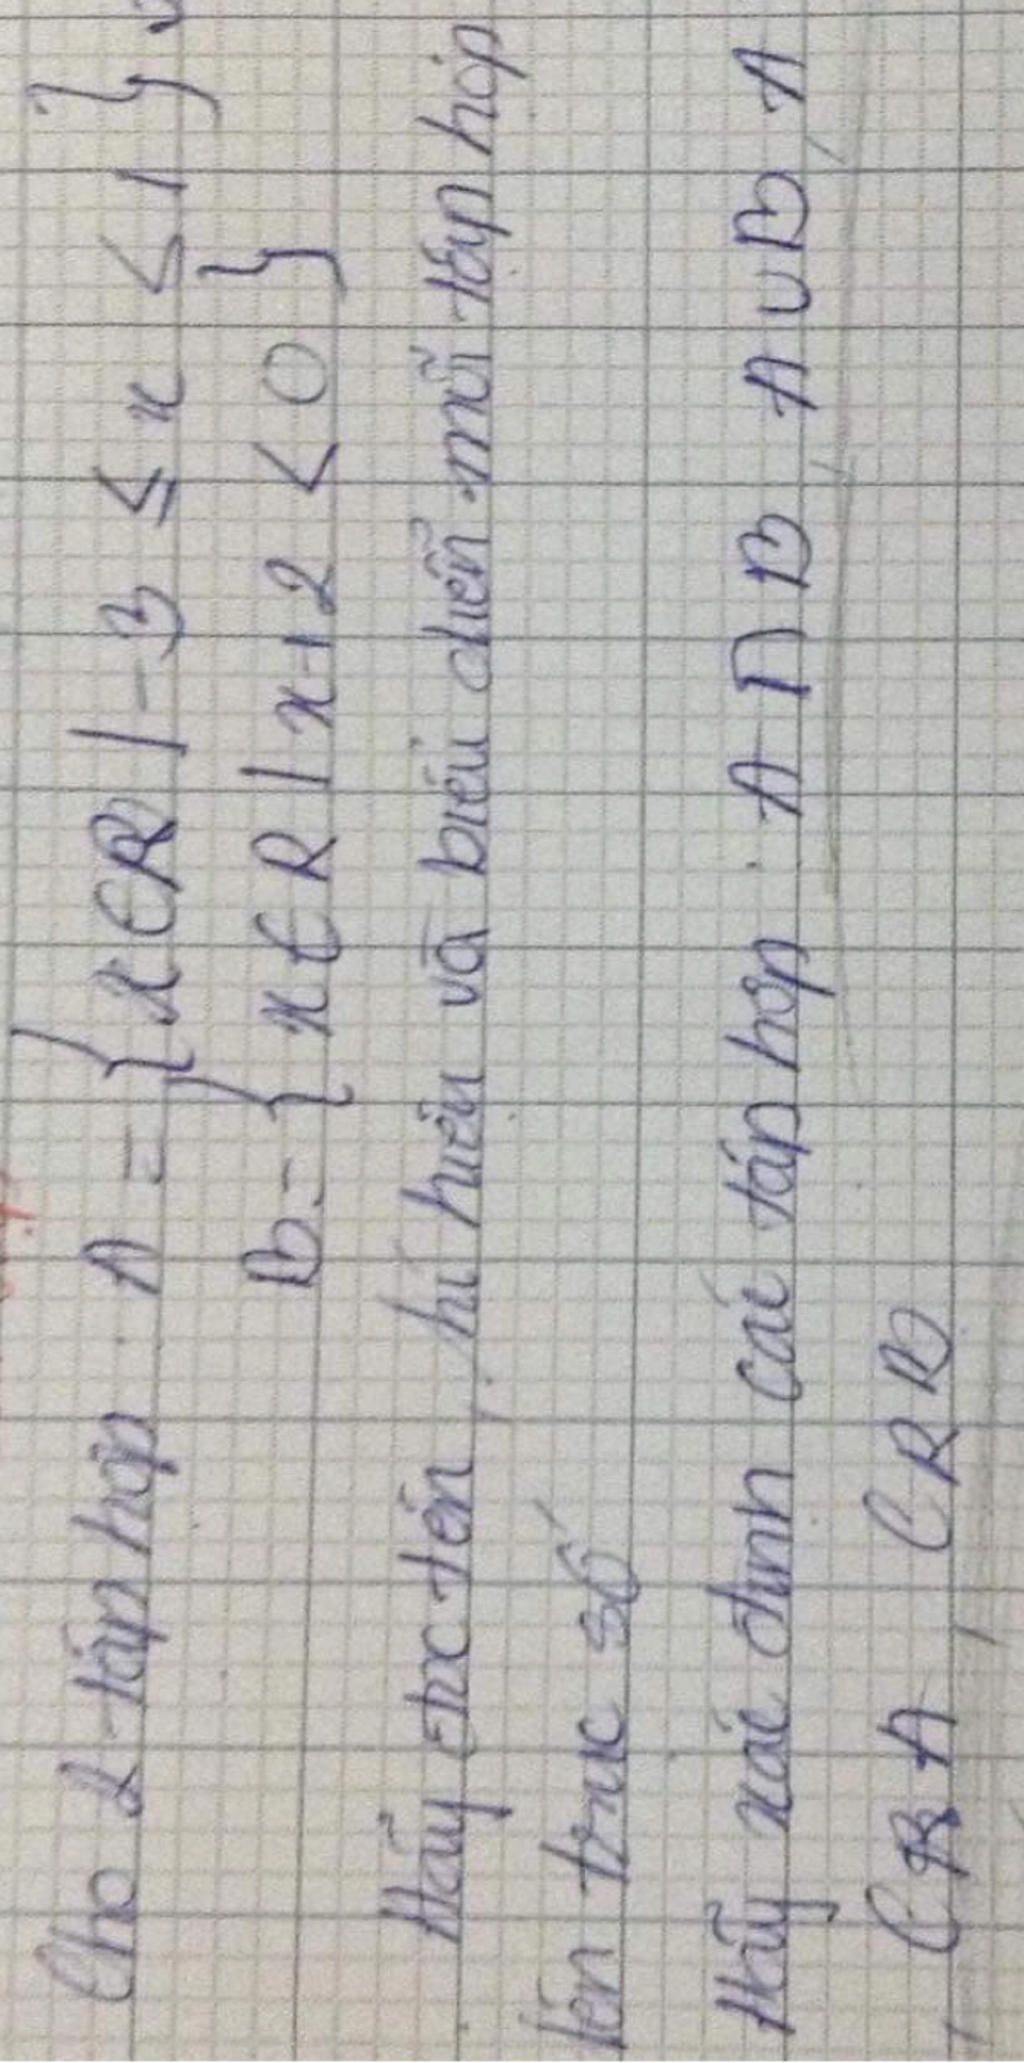 Cho 2 tập hợp A = { x ∈ R | -3 ≤ x ≤ 1 }
B = { x ∈ R | x+2 < 0 }
Hãy đọc tên, kí hiệu và biểu diễn mỗi tập hợp
lên trục số
Hãy xác định các tập hợp A ∩ B, A ∪ B, A
CRA, CRB